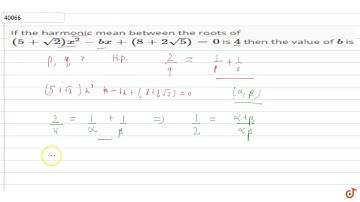 40066
If the harmonic mean between the roots of
(5 + √2)x² − bx + (8 + 2√5) = 0 is 4 then the value of b is
p, q, r H.p. 2/q = 1/p + 1/r
(5+√2)x² - bx + (8+2√5) = 0 (α, β)
2/4 = 1/α + 1/β ⇒ 1/2 = α+β/αβ
doubtnut